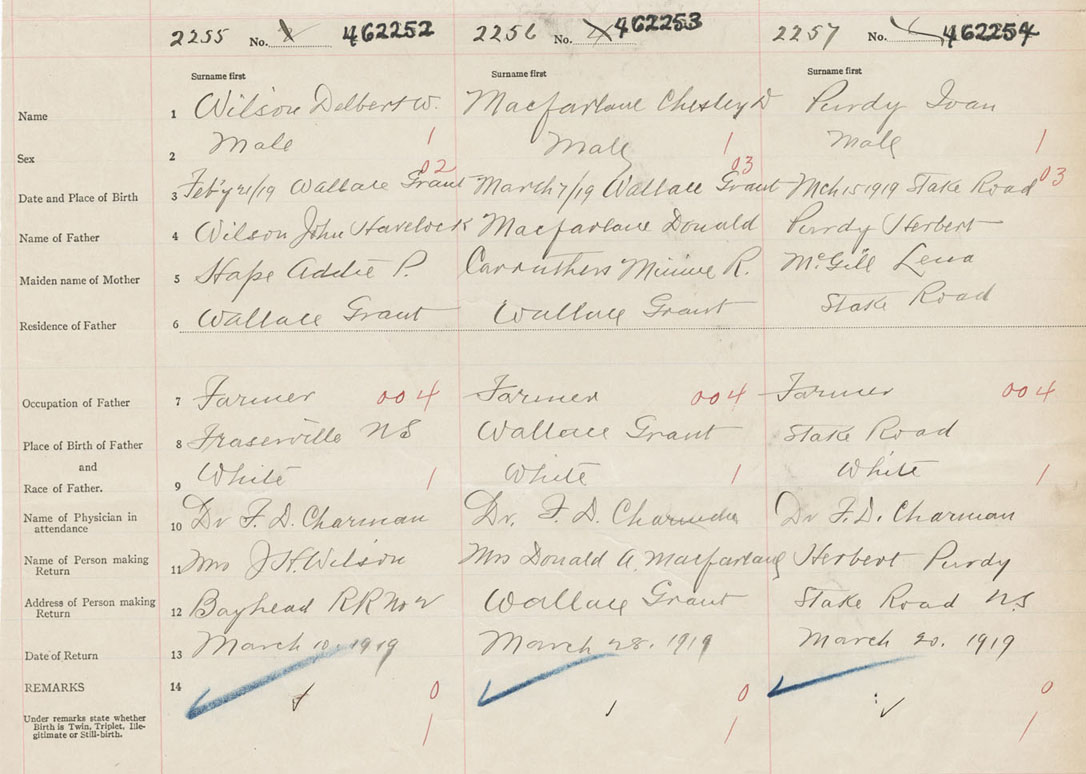 2255 No. 462252 2256 No. 462253 2257 No. 462254
Surname first Surname first Surname first
Name 1 Wilson Delbert W. Macfarlane Chesley D Purdy Ivan
Sex 2 Male 1 Male 1 Male 1
02 03 03
Date and Place of Birth 3 Feb'y 21/19 Wallace Grant March 7/19 Wallace Grant Mch 15 1919 Stake Road
Name of Father 4 Wilson John Havelock Macfarlane Donald Purdy Herbert
Maiden name of Mother 5 Addie P. Carruthers Minnie R. McGill Lena
Residence of Father 6 Wallace Grant Wallace Grant Stake Road
Occupation of Father 7 Farmer 004 Farmer 004 Farmer 004
Place of Birth of Father 8 Fraserville NS Wallace Grant Stake Road
and
Race of Father. 9 White 1 White 1 White 1
Name of Physician in
attendance 10 Dr F. D. Charman Dr. F. D. Dr F. D. Charman
Name of Person making
Return 11 Mrs J H Wilson Mrs Donald A. Macfarlane Herbert Purdy
Address of Person making
Return 12 Bayhead RR No 2 Wallace Grant Stake Road NS
Date of Return 13 March 10. 1919 March 28. 1919 March 20. 1919
REMARKS 14 0 0 0
Under remarks state whether
Birth is Twin, Triplet, Ille-
gitimate or Still-birth. 1 1 1